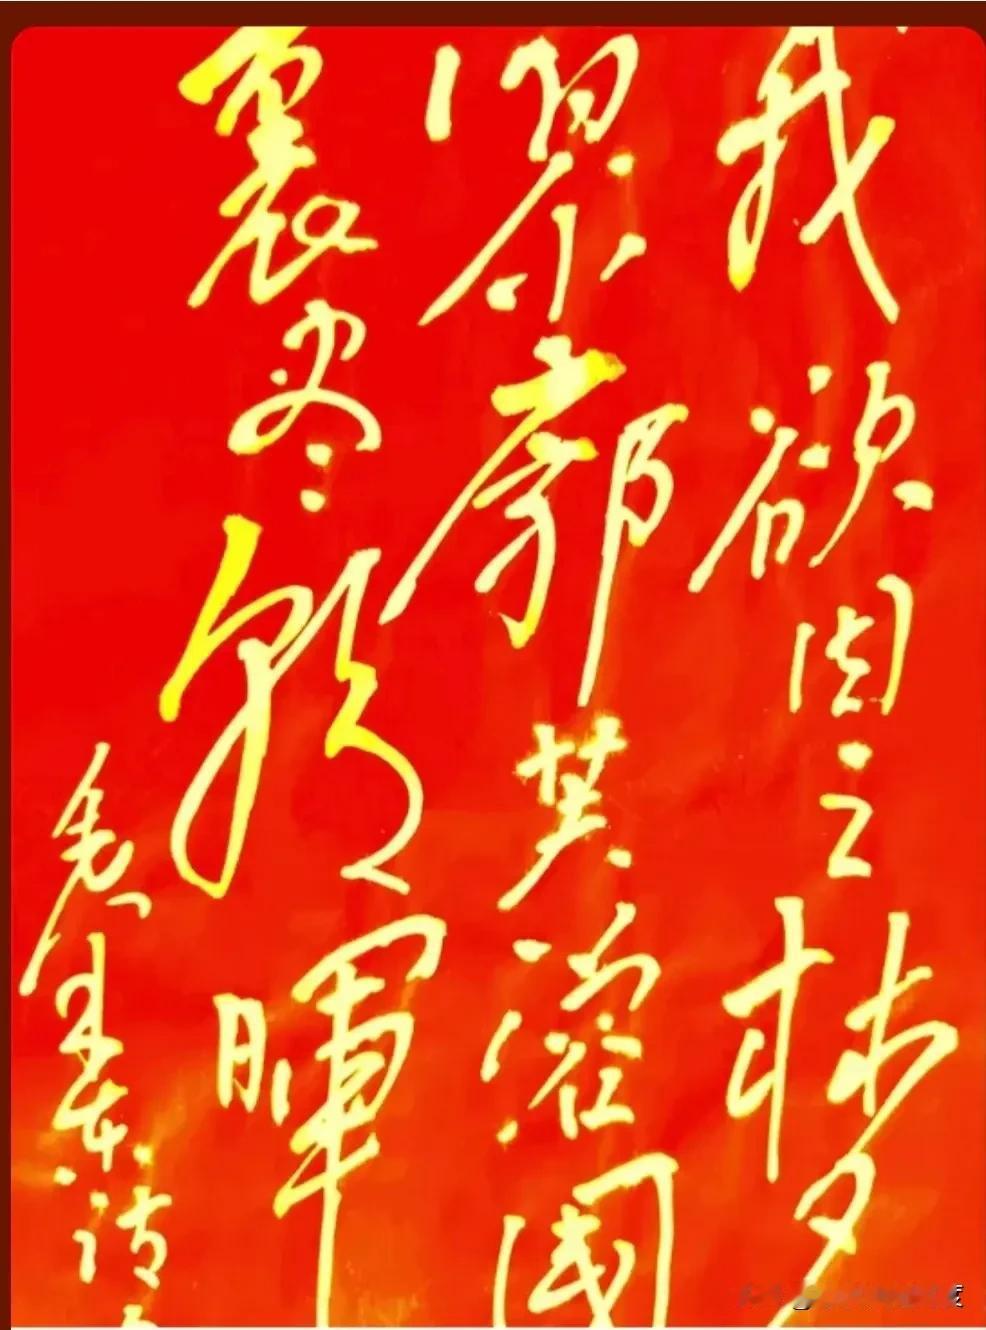 我欲因之梦
寥廓芙蓉国
里尽朝晖
毛泽东诗